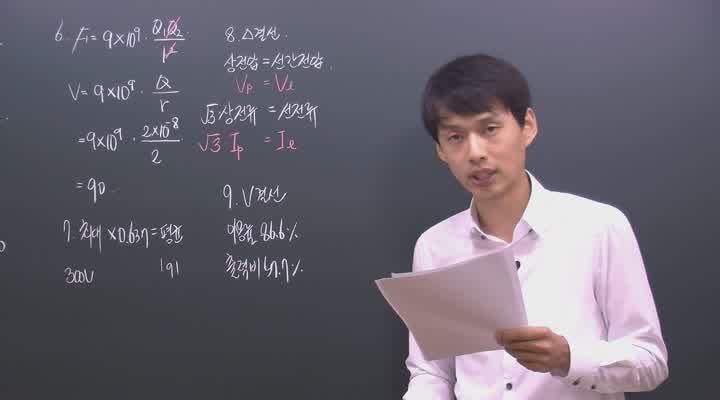 6. F = 9×10⁹ · Q₁Q₂/r²
V = 9×10⁹ · Q/r
= 9×10⁹ · 2×10⁻⁸/2
= 90
7. 최대 × 0.637 = 평균
300V 191
8. △결선
상전압 = 선간전압
Vp = Vl
√3 상전류 = 선전류
√3 Ip = Il
9. V결선
이용률 86.6%
출력비 57.7%